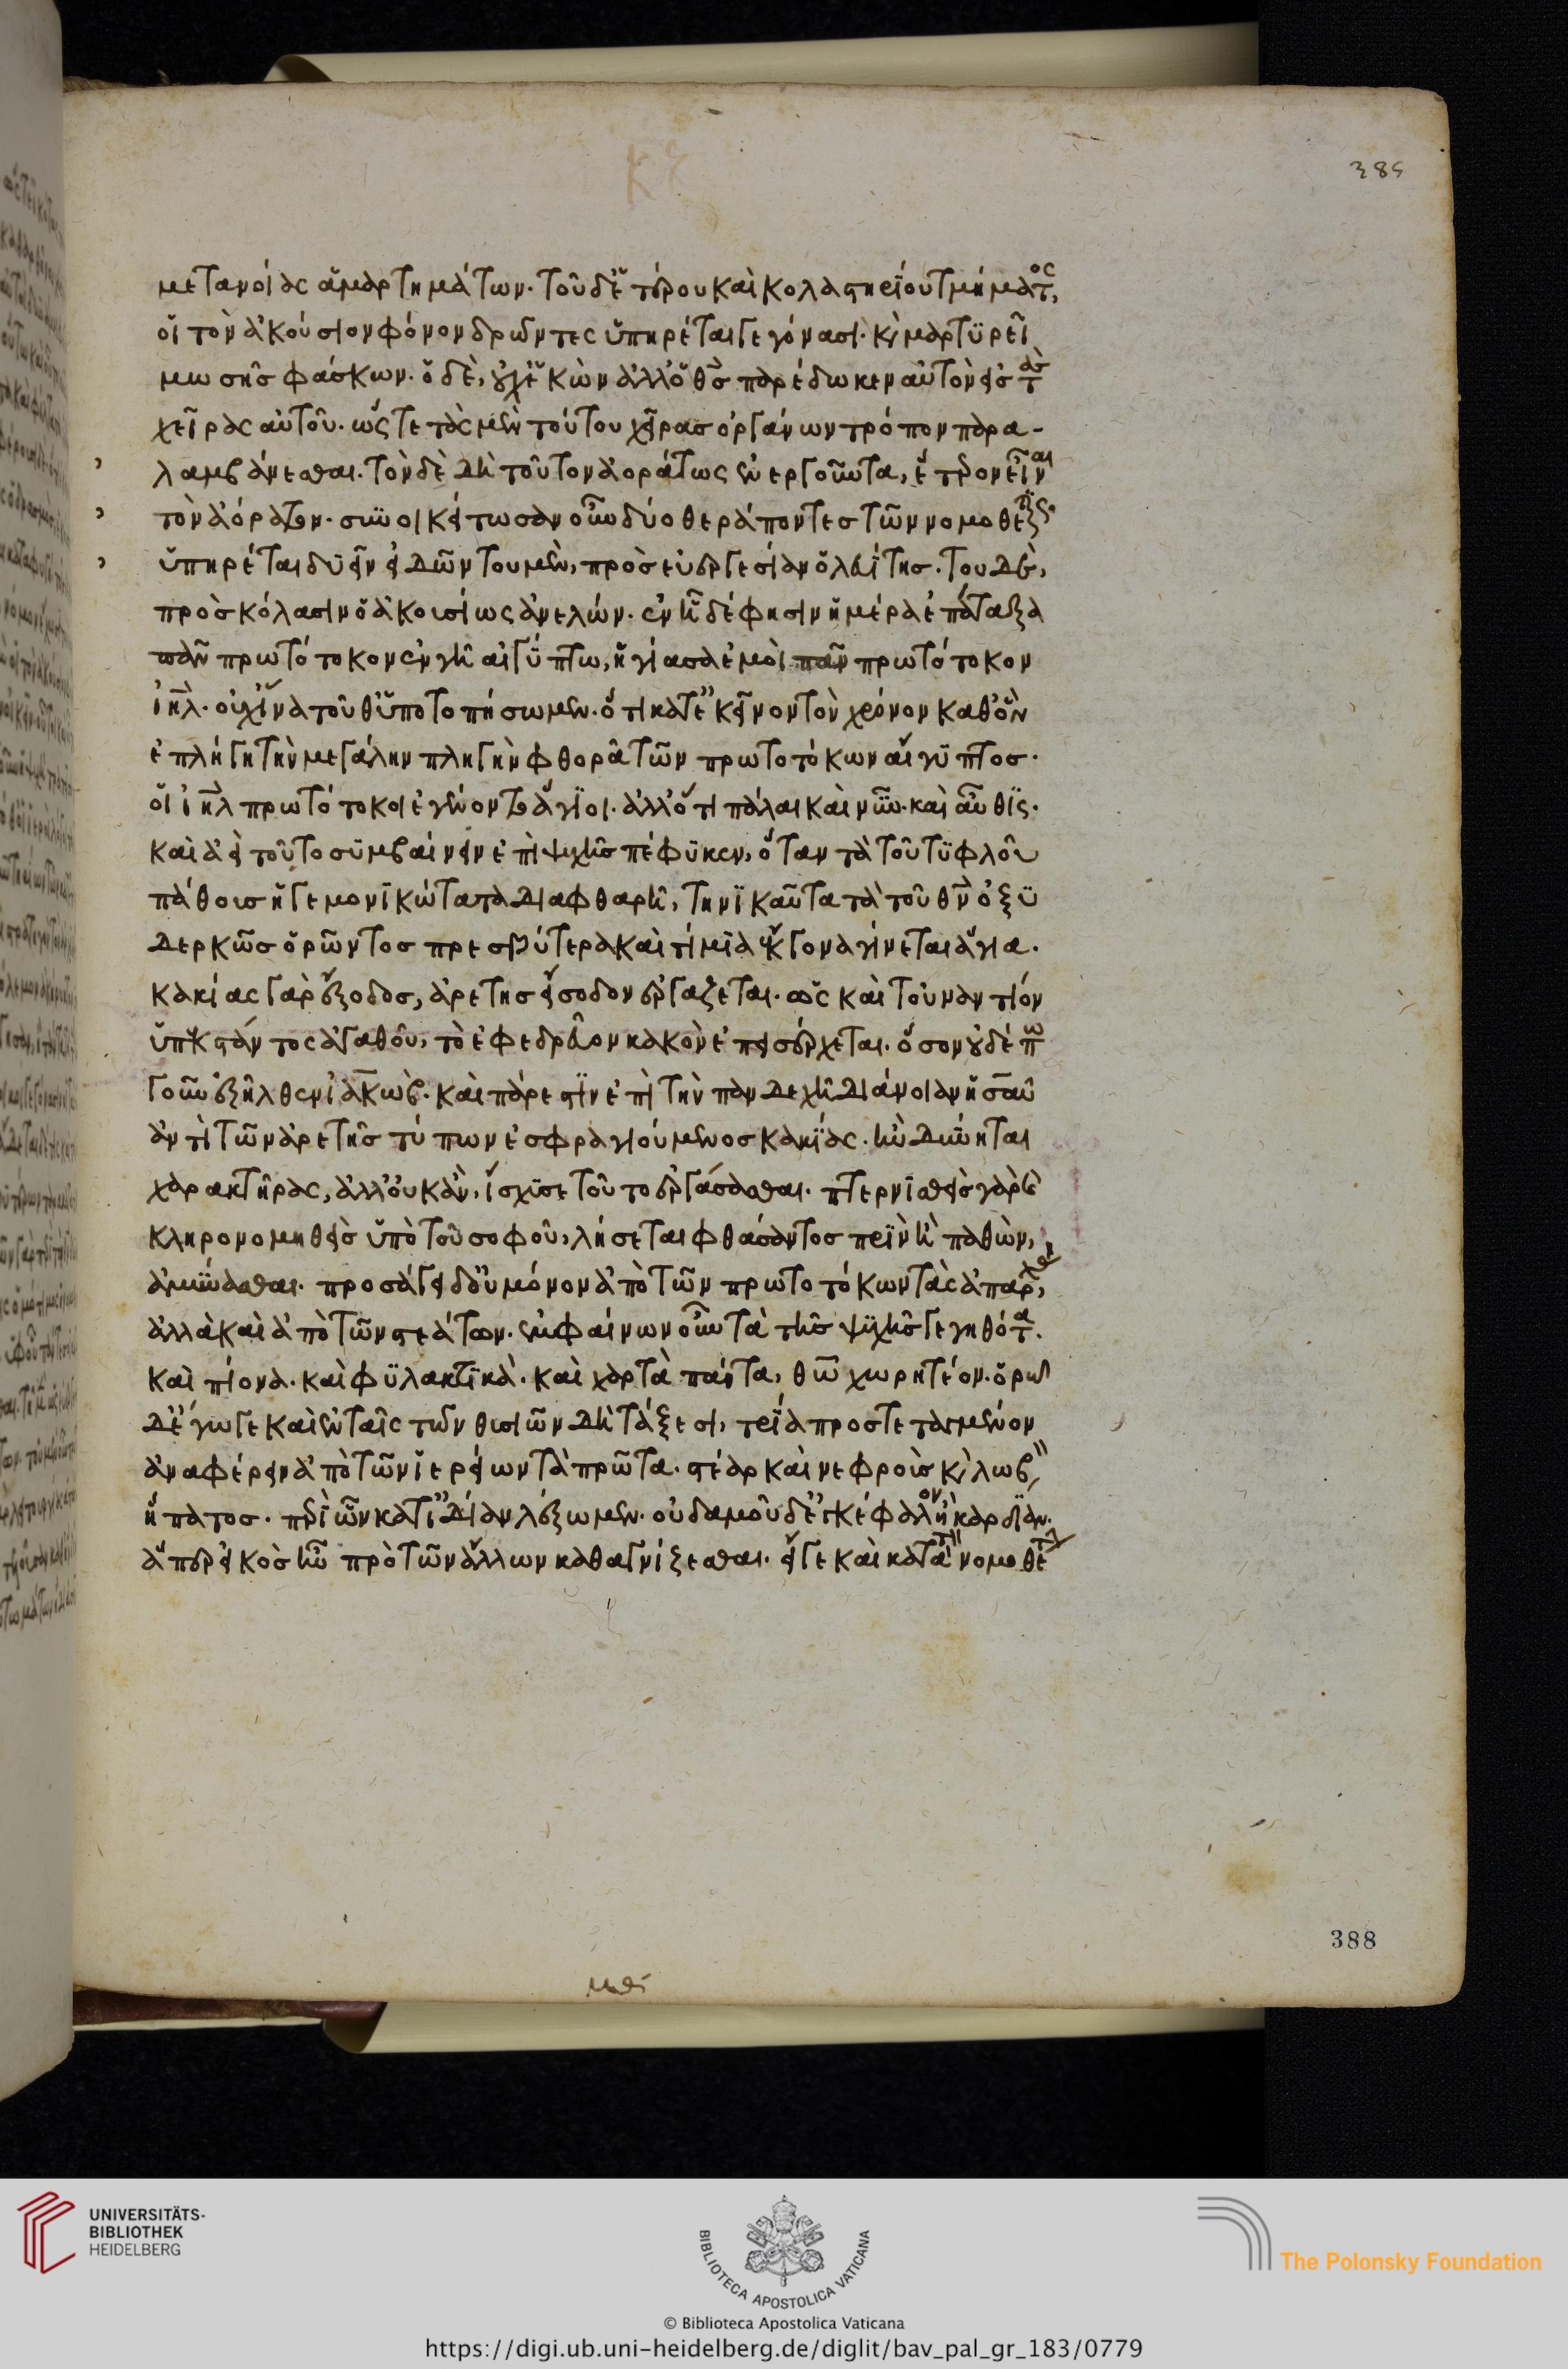 μετανοίας ἁμαρτημάτων. τοῦ δ' ἑτέρου καὶ κολαστηρίου τμήματος,
οἱ τὸν ἀκούσιον φόνον δρῶντες ὑπηρέται γεγόνασι. κ, μαρτυρεῖ
μωσῆς φάσκων. ὁ δὲ, οὐχ ἑκὼν ἀλλ' ὁ θς παρέδωκεν αὐτὸν εἰς τὰς
χεῖρας αὐτοῦ. ὥστε τὰς μὲν τούτου χεῖρας ὀργάνων τρόπον παρα-
λαμβάνεσθαι. τὸν δὲ διὰ τοῦτον ἀοράτως ἐνεργοῦντα, ἕτερον εἶναι
τὸν ἀόρατον. συνοικείτωσαν οὖν δύο θεράποντες τῶν νομοθετ
ὑπηρέται δυεῖν εἰδῶν τοῦ μὲν, πρὸς εὐεργεσίαν ὁ λευίτης. τοῦ δὲ,
πρὸς κόλασιν ὁ ἀκουσίως ἀνελών. ἐν ᾗ δέ φησιν ἡμέρα ἐπάταξα
πᾶν πρωτότοκον ἐν γῆ αἰγύπτω, ἡγίασα ἐμοὶ πᾶν πρωτότοκον
ιηλ. οὐχ ἵνα τοῦθ' ὑποτοπήσωμεν. ὅτι κατ' ἐκεῖνον τὸν χρόνον καθ' ὃν
ἐπλήγη τὴν μεγάλην πληγὴν φθορᾶ τῶν πρωτοτόκων αἴγυπτος.
οἱ ιηλ πρωτότοκοι ἐγένοντο ἅγιοι. ἀλλ' ὅτι πάλαι καὶ νῦν. καὶ αὖθις.
καὶ ἀεὶ τοῦτο συμβαίνειν ἐπὶ ψυχῆς πέφυκεν, ὅταν τὰ τοῦ τυφλοῦ
πάθους ἡγεμονικώτατα διαφθαρῆ, τηνικαῦτα τὰ τοῦ θν ὀξυ
δερκῶς ὁρῶντος πρεσβύτερα καὶ τίμια ἔκγονα γίνεται ἅγια.
κακίας γὰρ ἔξοδος, ἀρετῆς εἴσοδον ἐργάζεται. ὡς καὶ τοὐναντίον
ὑπεκστάντος ἀγαθοῦ, τὸ ἐφεδρεῦον κακὸν ἐπεισέρχεται. ὅσον οὐδέπω
γοῦν ἐξῆλθεν ἰακώβ. καὶ πάρεστιν ἐπὶ τὴν πανδεχῆ διάνοιαν ἡσαῦ
ἀντὶ τῶν ἀρετῆς τύπων ἐσφραγιούμενος κακίας. ἢν δύνηται
χαρακτῆρας, ἀλλ' οὐκ ἂν, ἴσχυσε τοῦτο ἐργάσασθαι. πτερνισθεὶς γὰρ
κληρονομηθεὶς ὑπὸ τοῦ σοφοῦ, λήσεται φθάσαντος πρὶν ἢ παθὼν,
ἀμύνασθαι. προσάγει δ' οὐ μόνον ἀπὸ τῶν πρωτοτόκων τὰς ἀπαρχὰς,
ἀλλὰ καὶ ἀπὸ τῶν στεάτων. ἐμφαίνων οὖν τὰ τῆς ψυχῆς γεγηθότα.
καὶ πίονα. καὶ φυλακτικὰ. καὶ χαρτὰ πάντα, θω χωρητέον. ὁρῶ
δ' ἔγωγε καὶ ἐν ταῖς τῶν θυσιῶν διατάξεσι, τρία προστεταγμένον
ἀναφέρειν ἀπὸ τῶν ἱερείων τὰ πρῶτα. στέαρ καὶ νεφροὺς κ, λωβ
ἥπατος. περὶ ὧν κατ' ἰδίαν λέξωμεν. οὐδαμοῦ δ' ἐγκέφαλον ἢ καρδίαν.
ἅπερ εἰκὸς ἦν πρὸ τῶν ἄλλων καθαγνίζεσθαι. εἴγε καὶ κατὰ τ νομοθέτ
385
388
UNIVERSITÄTS-
BIBLIOTHEK
HEIDELBERG
BIBLIOTECA APOSTOLICA VATICANA
The Polonsky Foundation
© Biblioteca Apostolica Vaticana
https://digi.ub.uni-heidelberg.de/diglit/bav_pal_gr_183/0779